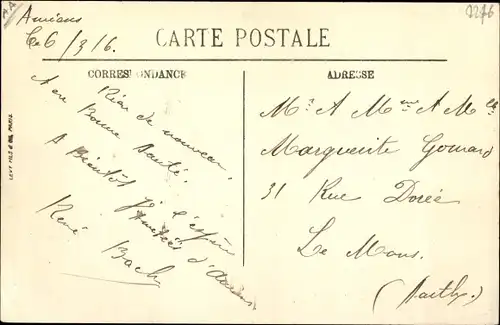 Amiens
Le 6/3/16.
CARTE POSTALE
CORRESPONDANCE
ADRESSE
Rien de nouveau,
en
Bonne Santé.
A Bientôt j'espère
Amitiés d'
René Bach
Mr & Mme & Mlle
Marguerite Gomard
31 Rue Dorée
Le Mans.
(Sarthe)
LEVY FILS & CIE PARIS